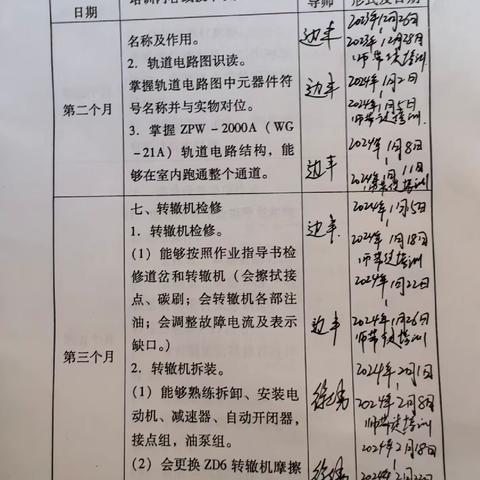 日期
导师
形式及日期
名称及作用。
2. 轨道电路图识读。
掌握轨道电路图中元器件符
号名称并与实物对位。
3. 掌握 ZPW-2000A（WG
-21A）轨道电路结构，能够
在室内跑通整个通道。
第二个月
边丰
边丰
边丰
2023年12月26日
2023年12月28日
师带徒培训
2024年1月2日
2024年1月5日
师带徒培训
2024年1月8日
2024年1月11日
师带徒培训
七、转辙机检修
1. 转辙机检修。
（1）能够按照作业指导书检
修道岔和转辙机（会擦拭接
点、碳刷；会转辙机各部注
油；会调整故障电流及表示
缺口。）
2. 转辙机拆装。
（1）能够熟练拆卸、安装电
动机、减速器、自动开闭器，
接点组，油泵组。
（2）会更换 ZD6 转辙机摩擦
第三个月
边丰
边丰
2024年1月15日
2024年1月18日
师带徒培训
2024年1月22日
2024年1月26日
师带徒培训
2024年2月1日
2024年2月8日
师带徒培训
2024年2月18日